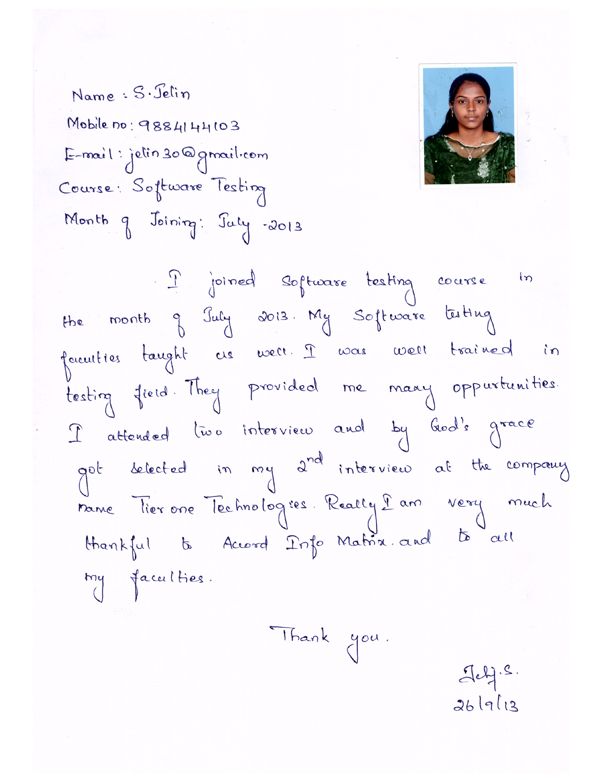 Name : S.Jelin
Mobile no: 9884144103
E-mail : jelin30@gmail.com
Course: Software Testing
Month of Joining: July -2013
I joined Software testing course in
the month of July 2013. My Software testing
faculties taught us well. I was well trained in
testing field. They provided me many oppurtunities.
I attended two interview and by God's grace
got selected in my 2nd interview at the company
name Tier one Technologies. Really I am very much
thankful to Accord Info Matrix. and to all
my faculties.
Thank you.
Jelin.S.
26/9/13